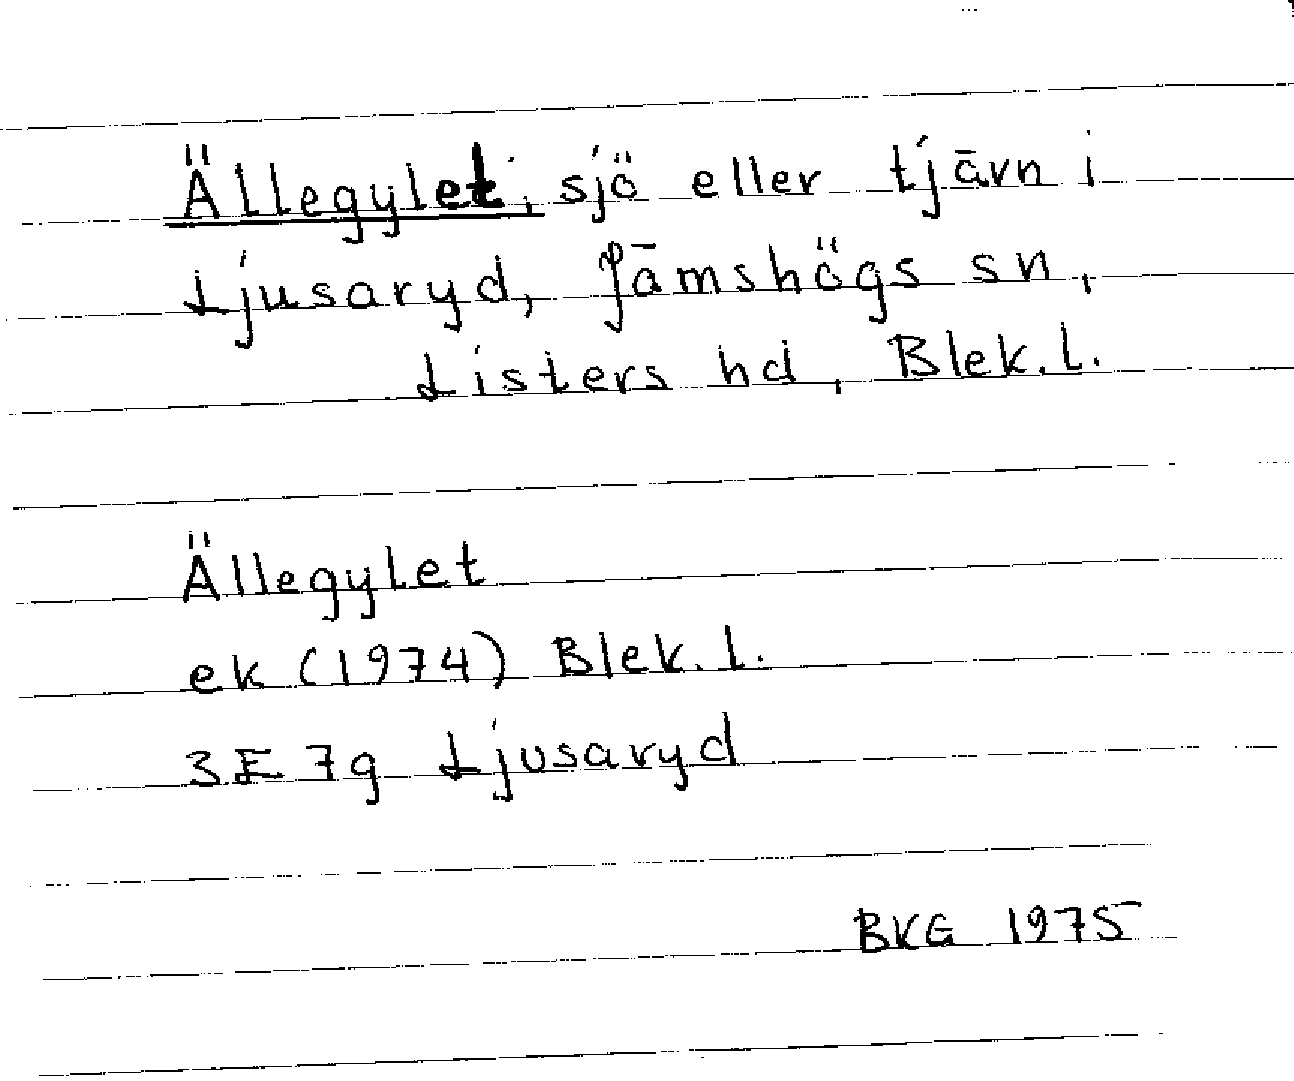 Ällegylet, sjö eller tjärn i
Ljusaryd, Jämshögs sn,
Listers hd, Blek. l.
Ällegylet
ek (1974) Blek. l.
3E 7g Ljusaryd
BKG 1975